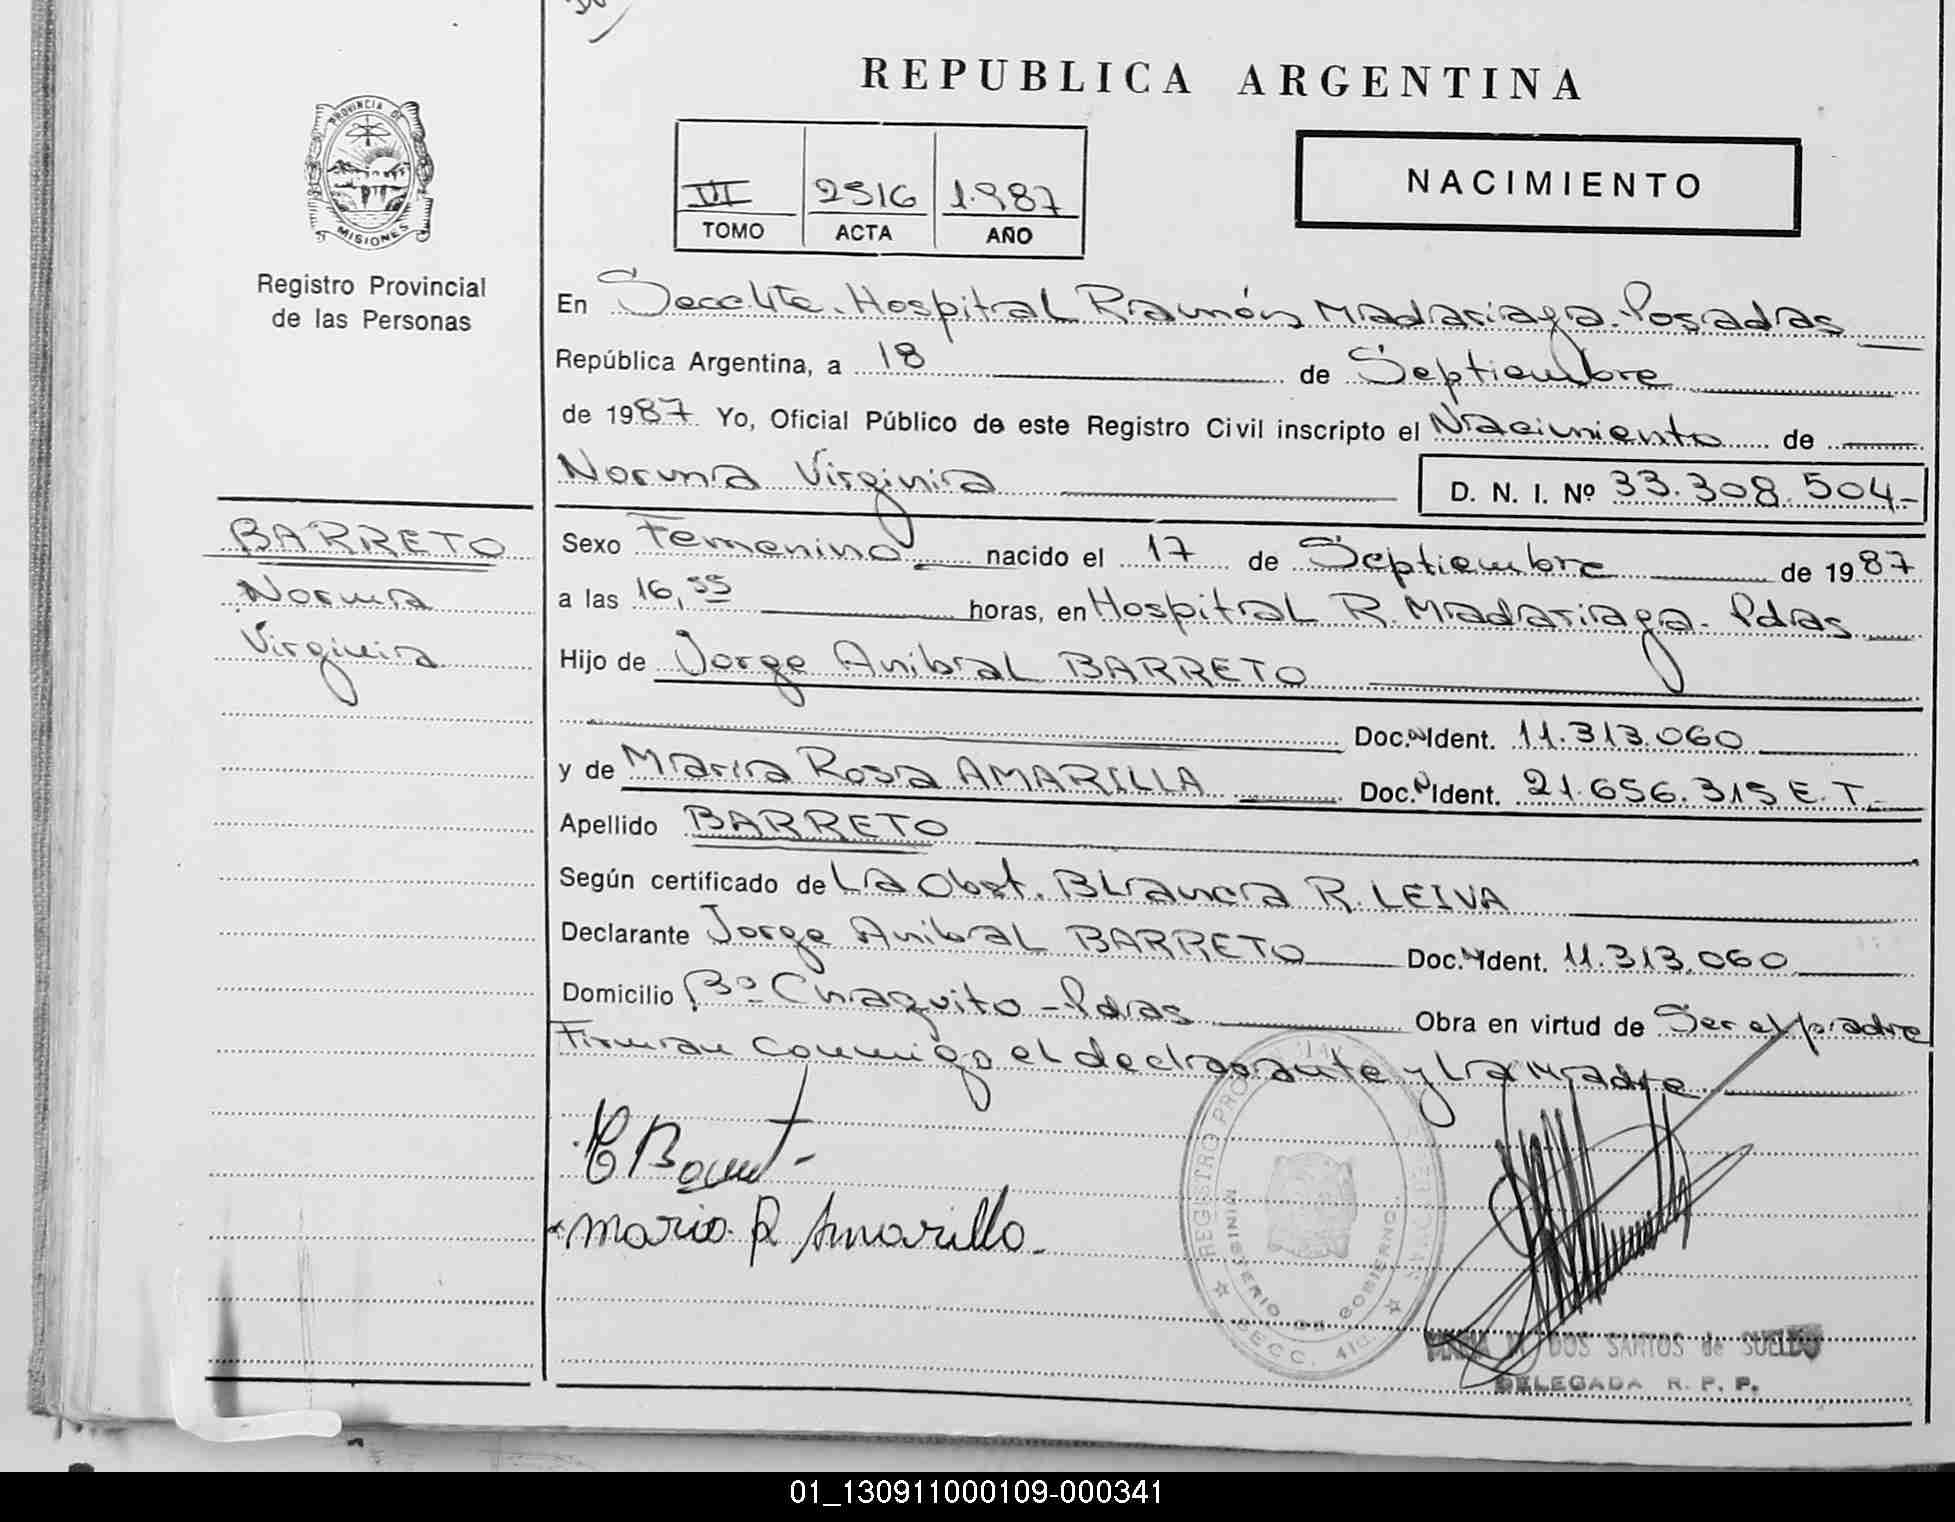 REPUBLICA ARGENTINA
PROVINCIA DE
MISIONES
Registro Provincial
de las Personas
TOMO
2516 ACTA
1.987 AÑO
NACIMIENTO
En Secc. 4ta. Hospital Ramón Madariaga. Posadas
República Argentina, a 18 de Septiembre
de 1987 Yo, Oficial Público de este Registro Civil inscripto el Nacimiento de
Norma Virginia
D. N. I. Nº 33.308.504-
BARRETO
Norma
Virginia
Sexo Femenino nacido el 17 de Septiembre de 1987
a las 16,55 horas, en Hospital R. Madariaga. Pdas
Hijo de Jorge Anibal BARRETO
Doc. Ident. 11.313.060
y de Maria Rosa AMARILLA Doc. Ident. 21.656.315 E.T.-
Apellido BARRETO
Según certificado de La Obst. Blanca R. LEIVA
Declarante Jorge Anibal BARRETO Doc. Ident. 11.313.060
Domicilio Bº Chaquito - Pdas Obra en virtud de Ser el padre
Firman conmigo el declarante y La Madre
Maria R Amarilla
REGISTRO
MINISTERIO DE GOBIERNO
SECC. 4ta.
DOS SANTOS de SUELDO
DELEGADA R. P. P.
01_130911000109-000341